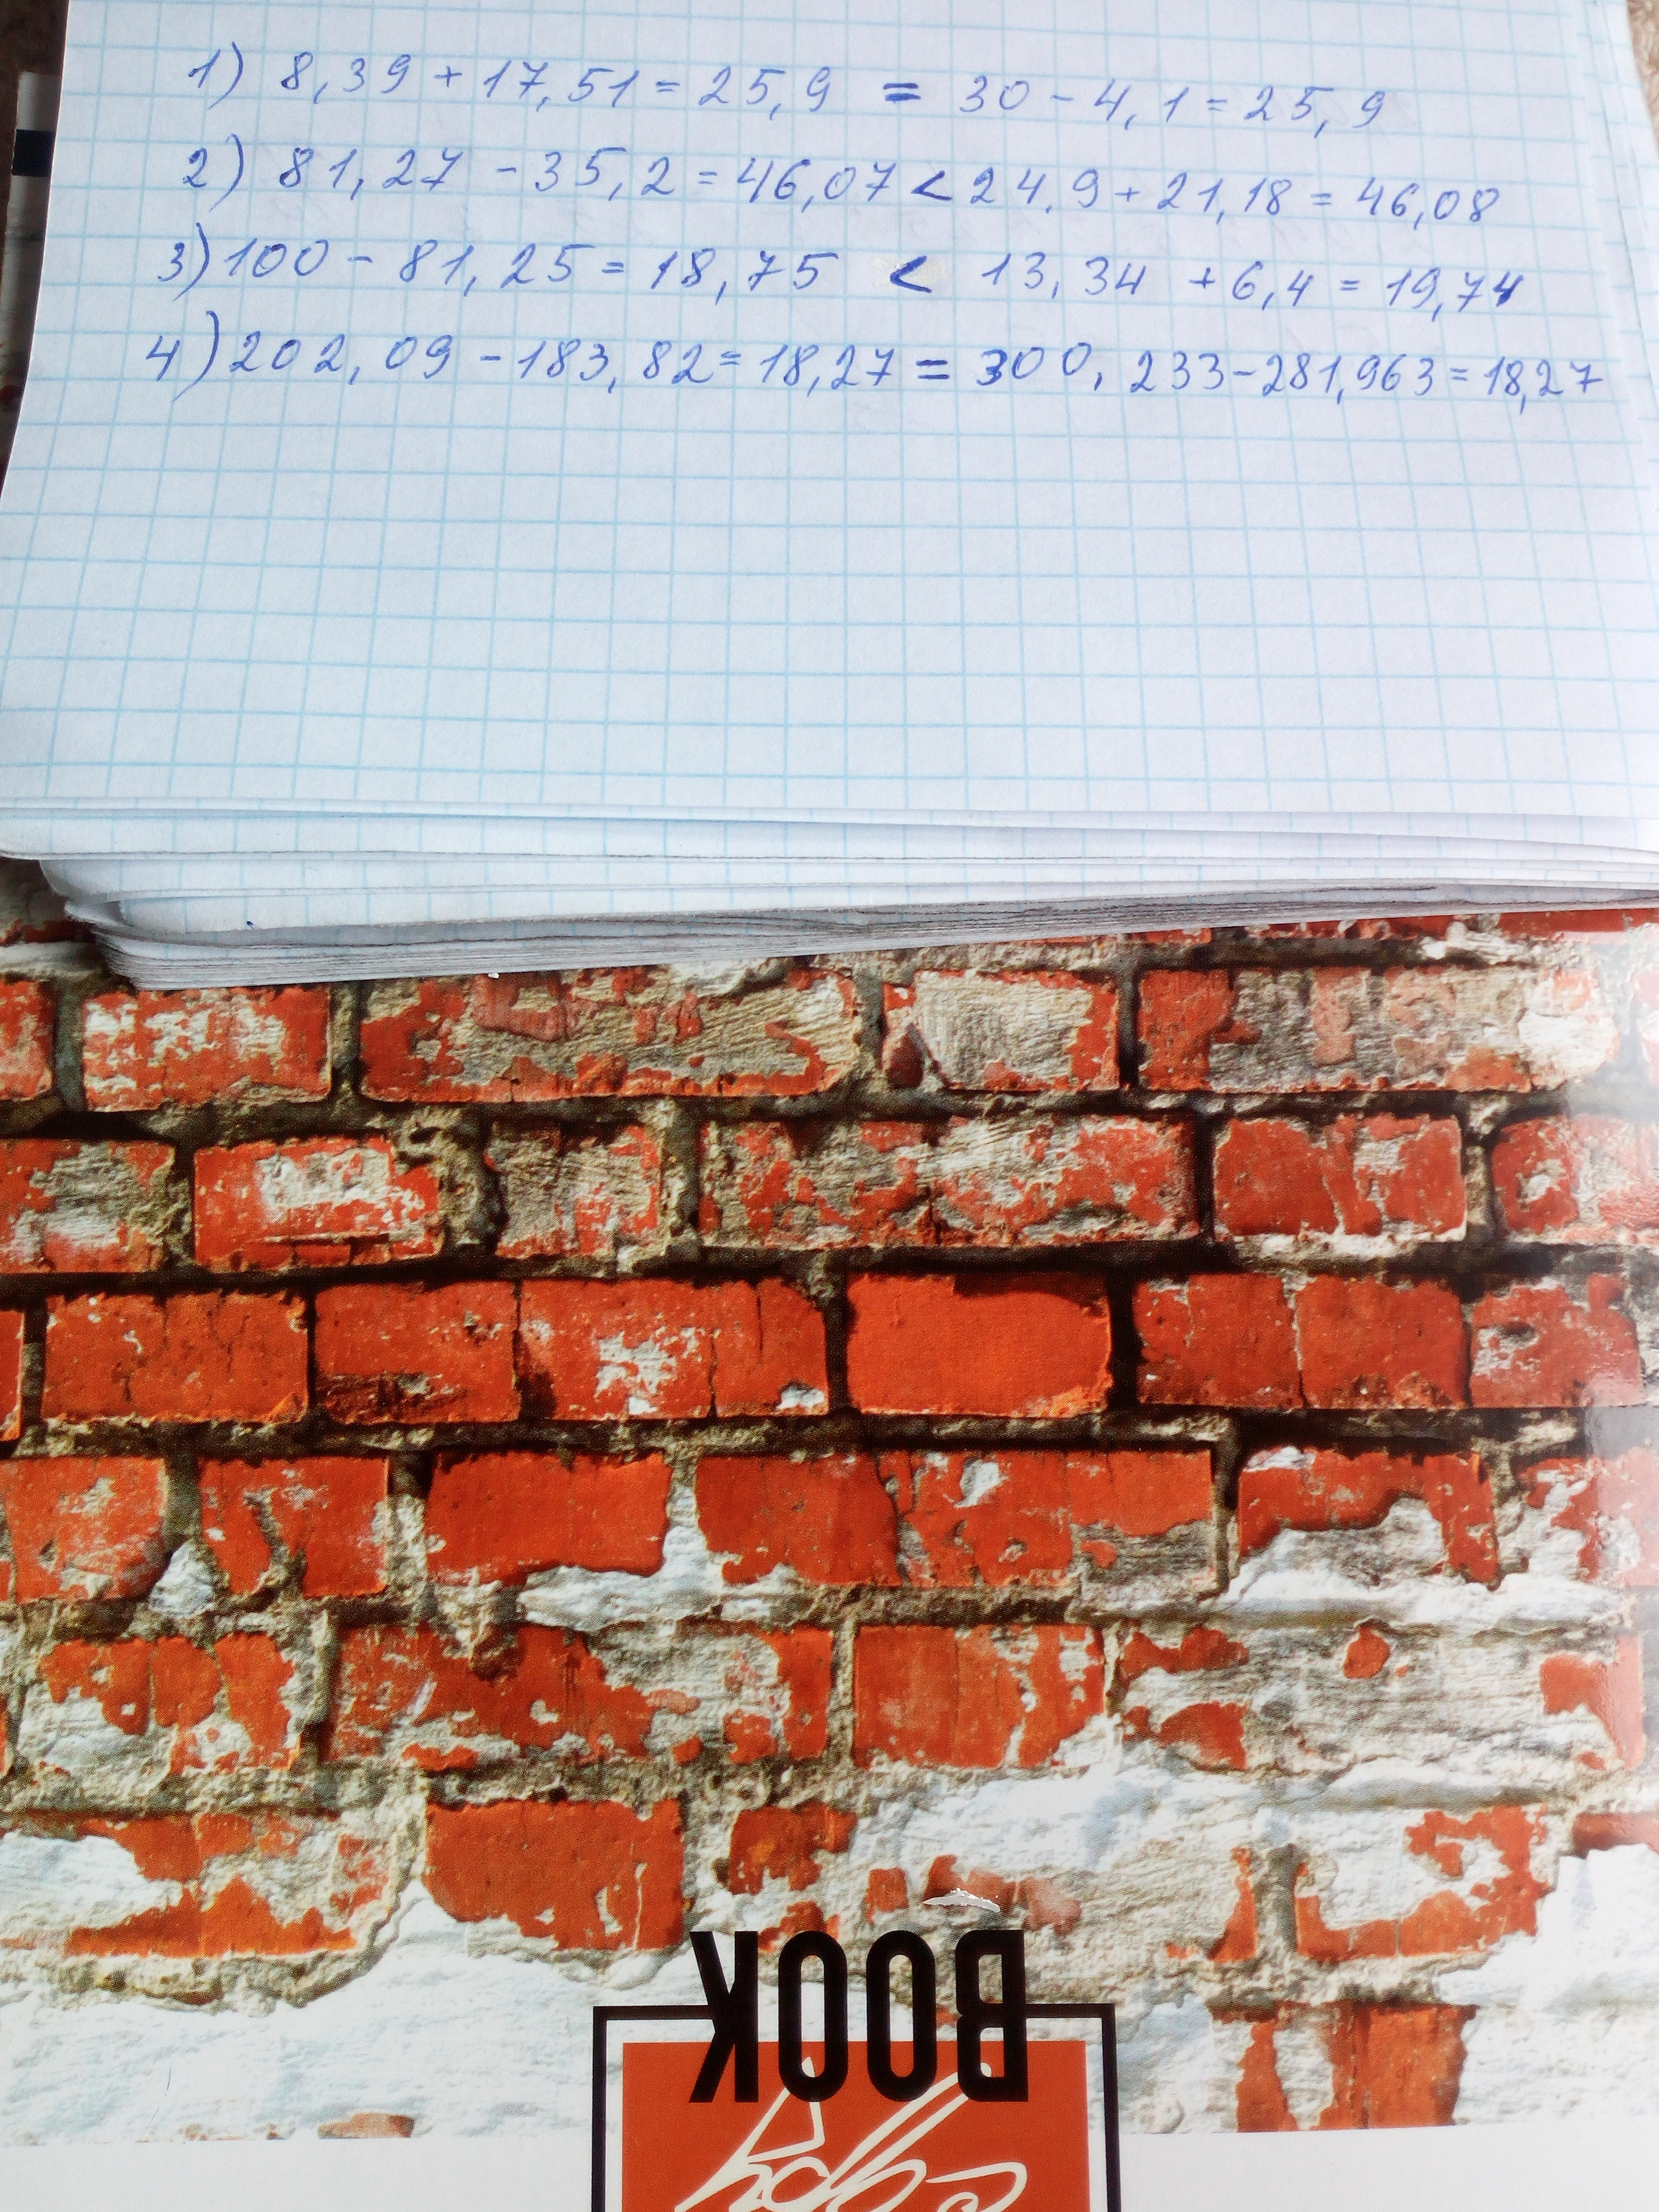 1) 8,39 + 17,51 = 25,9 = 30 - 4,1 = 25,9
2) 81,27 - 35,2 = 46,07 < 24.9 + 21,18 = 46,08
3) 100 - 81,25 = 18,75 < 13,34 + 6,4 = 19,74
4) 202,09 - 183,82 = 18,27 = 300,233 - 281,963 = 18,27
BOOK